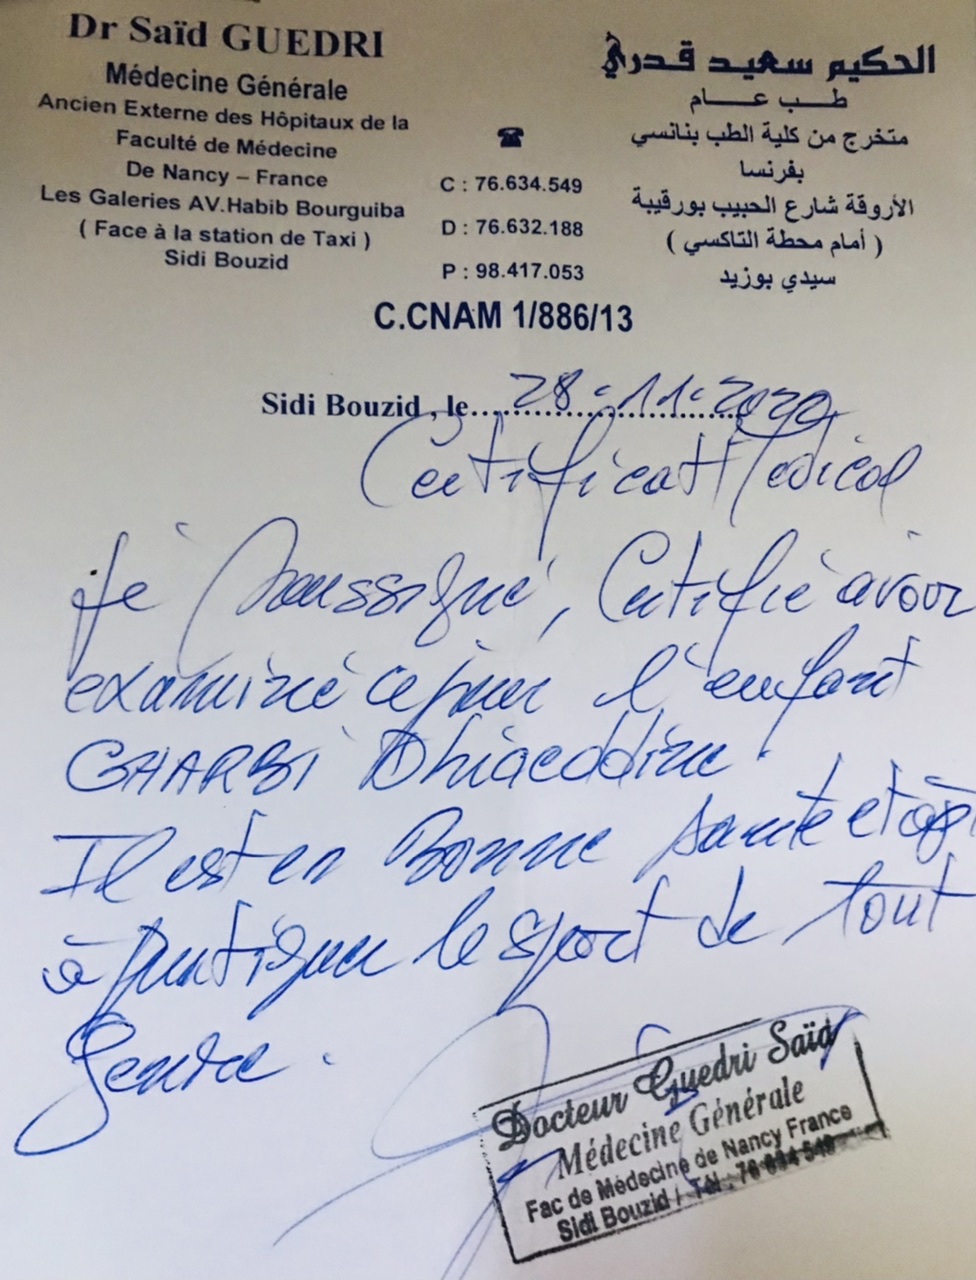 Dr Saïd GUEDRI
Médecine Générale
Ancien Externe des Hôpitaux de la
Faculté de Médecine
De Nancy – France
Les Galeries AV.Habib Bourguiba
( Face à la station de Taxi )
Sidi Bouzid
☎
C : 76.634.549
D : 76.632.188
P : 98.417.053
الحكيم سعيد قدري
طب عام
متخرج من كلية الطب بنانسي
بفرنسا
الأروقة شارع الحبيب بورقيبة
( أمام محطة التاكسي )
سيدي بوزيد
C.CNAM 1/886/13
Sidi Bouzid , le 28-11-2020
Certificat Médical
Je soussigné, Certifie avoir
examiné ce jour l'enfant
GHARBI Dhiaeddine.
Il est en Bonne santé et apt
à pratiquer le sport de tout
Genre.
Docteur Guedri Saïd
Médecine Générale
Fac de Médecine de Nancy France
Sidi Bouzid / Tél : 76 634 549